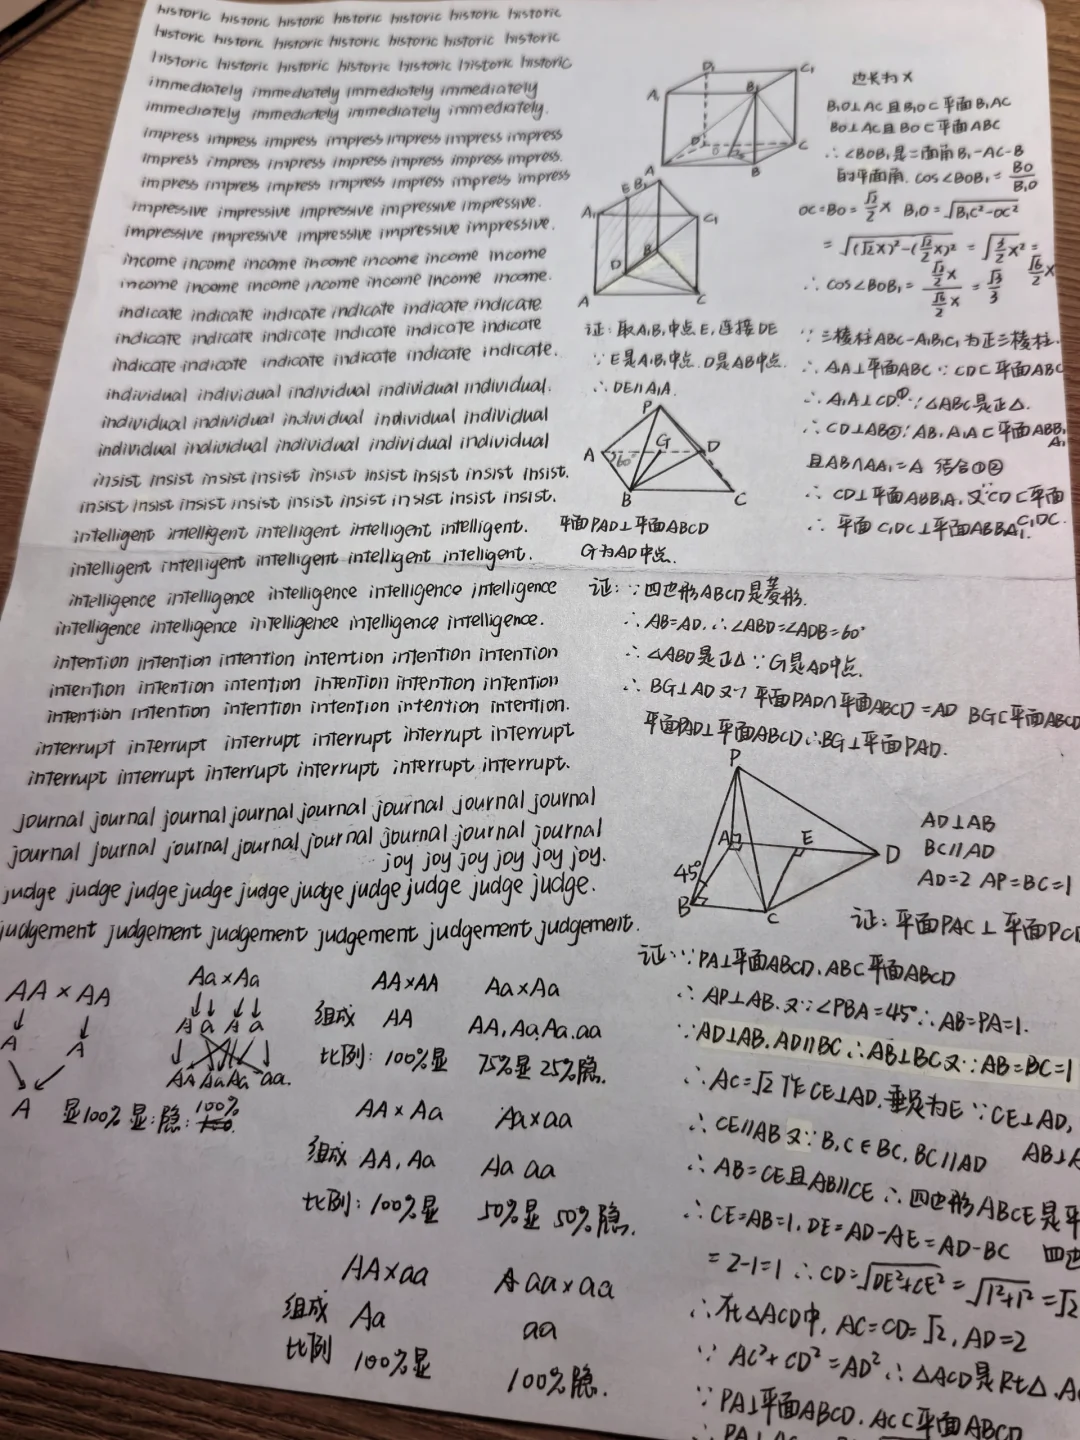 historic historic historic historic historic historic historic
historic historic historic historic historic historic historic
historic historic historic historic historic historic historic
immediately immediately immediately immediately
immediately immediately immediately immediately.
impress impress impress impress impress impress impress
impress impress impress impress impress impress impress.
impress impress impress impress impress impress impress
impressive impressive impressive impressive impressive.
impressive impressive impressive impressive impressive.
income income income income income income income
income income income income income income income.
indicate indicate indicate indicate indicate indicate
indicate indicate indicate indicate indicate indicate
indicate indicate indicate indicate indicate indicate.
individual individual individual individual individual.
individual individual individual individual individual
individual individual individual individual individual
insist insist insist insist insist insist insist insist insist.
insist insist insist insist insist insist insist insist insist.
intelligent intelligent intelligent intelligent intelligent.
intelligent intelligent intelligent intelligent intelligent.
intelligence intelligence intelligence intelligence intelligence
intelligence intelligence intelligence intelligence intelligence.
intention intention intention intention intention intention
intention intention intention intention intention intention
intention intention intention intention intention intention.
interrupt interrupt interrupt interrupt interrupt interrupt
interrupt interrupt interrupt interrupt interrupt interrupt.
journal journal journal journal journal journal journal journal
journal journal journal journal journal journal journal journal
joy joy joy joy joy joy.
judge judge judge judge judge judge judge judge judge judge.
judgement judgement judgement judgement judgement judgement.
AA × AA
A A
A
显100% 显:隐: 100%
Aa × Aa
A a A a
AA Aa Aa aa.
AA×AA Aa×Aa
组成 AA AA, Aa, Aa, aa
比例: 100%显 75%显 25%隐.
AA × Aa Aa×aa
组成 AA, Aa Aa aa
比例: 100%显 50%显 50%隐.
AA×aa aa×aa
组成 Aa aa
比例 100%显 100%隐.
D₁ C₁
A₁ B₁
D O C
A B
边长为X
B₁O⊥AC且B₁O⊂平面B₁AC
BO⊥AC且BO⊂平面ABC
∴∠BOB₁是二面角B₁-AC-B
的平面角. cos∠BOB₁=BO/B₁O
OC=BO=√2/2 x B₁O=√(B₁C²-OC²)
=√((√2x)²-(√2/2 x)²) =√(3/2 x²) = √6/2 x
∴cos∠BOB₁= (√2/2 x)/(√6/2 x) = √3/3
E B₁
A₁ C₁
D B
A C
证: 取A₁B₁中点E, 连接DE
∵E是A₁B₁中点. D是AB中点.
∴DE∥A₁A.
∵三棱柱ABC-A₁B₁C₁为正三棱柱.
∴A₁A⊥平面ABC∵CD⊂平面ABC
∴A₁A⊥CD①∵△ABC是正△.
∴CD⊥AB②∵AB, A₁A⊂平面ABB₁A₁
且AB∩AA₁=A 结合①②
∴CD⊥平面ABB₁A₁又∵CD⊂平面C₁DC.
∴平面C₁DC⊥平面ABBA₁.
P
A 60° G D
B C
平面PAD⊥平面ABCD
G为AD中点.
证: ∵四边形ABCD是菱形.
∴AB=AD. ∴∠ABD=∠ADB=60°
∴△ABD是正△∵G是AD中点.
∴BG⊥AD又∵平面PAD∩平面ABCD=AD BG⊂平面ABCD
平面PAD⊥平面ABCD∴BG⊥平面PAD.
P
A E D
45°
B C
AD⊥AB
BC∥AD
AD=2 AP=BC=1
证: 平面PAC⊥平面PCD
证: ∵PA⊥平面ABCD, ABC平面ABCD
∴AP⊥AB. 又∵∠PBA=45°∴AB=PA=1.
∵AD⊥AB, AD∥BC∴AB⊥BC又∵AB=BC=1
∴AC=√2作CE⊥AD, 垂足为E∵CE⊥AD,
∴CE∥AB又∵B,C∈BC, BC∥AD
∴AB=CE且AB∥CE∴四边形ABCE是
∴CE=AB=1, DE=AD-AE=AD-BC
=2-1=1∴CD=√(DE²+CE²)=√(1²+1²)=√2
∴在△ACD中, AC=CD=√2, AD=2
∵AC²+CD²=AD²∴△ACD是Rt△.
∵PA⊥平面ABCD, AC⊂平面ABCD